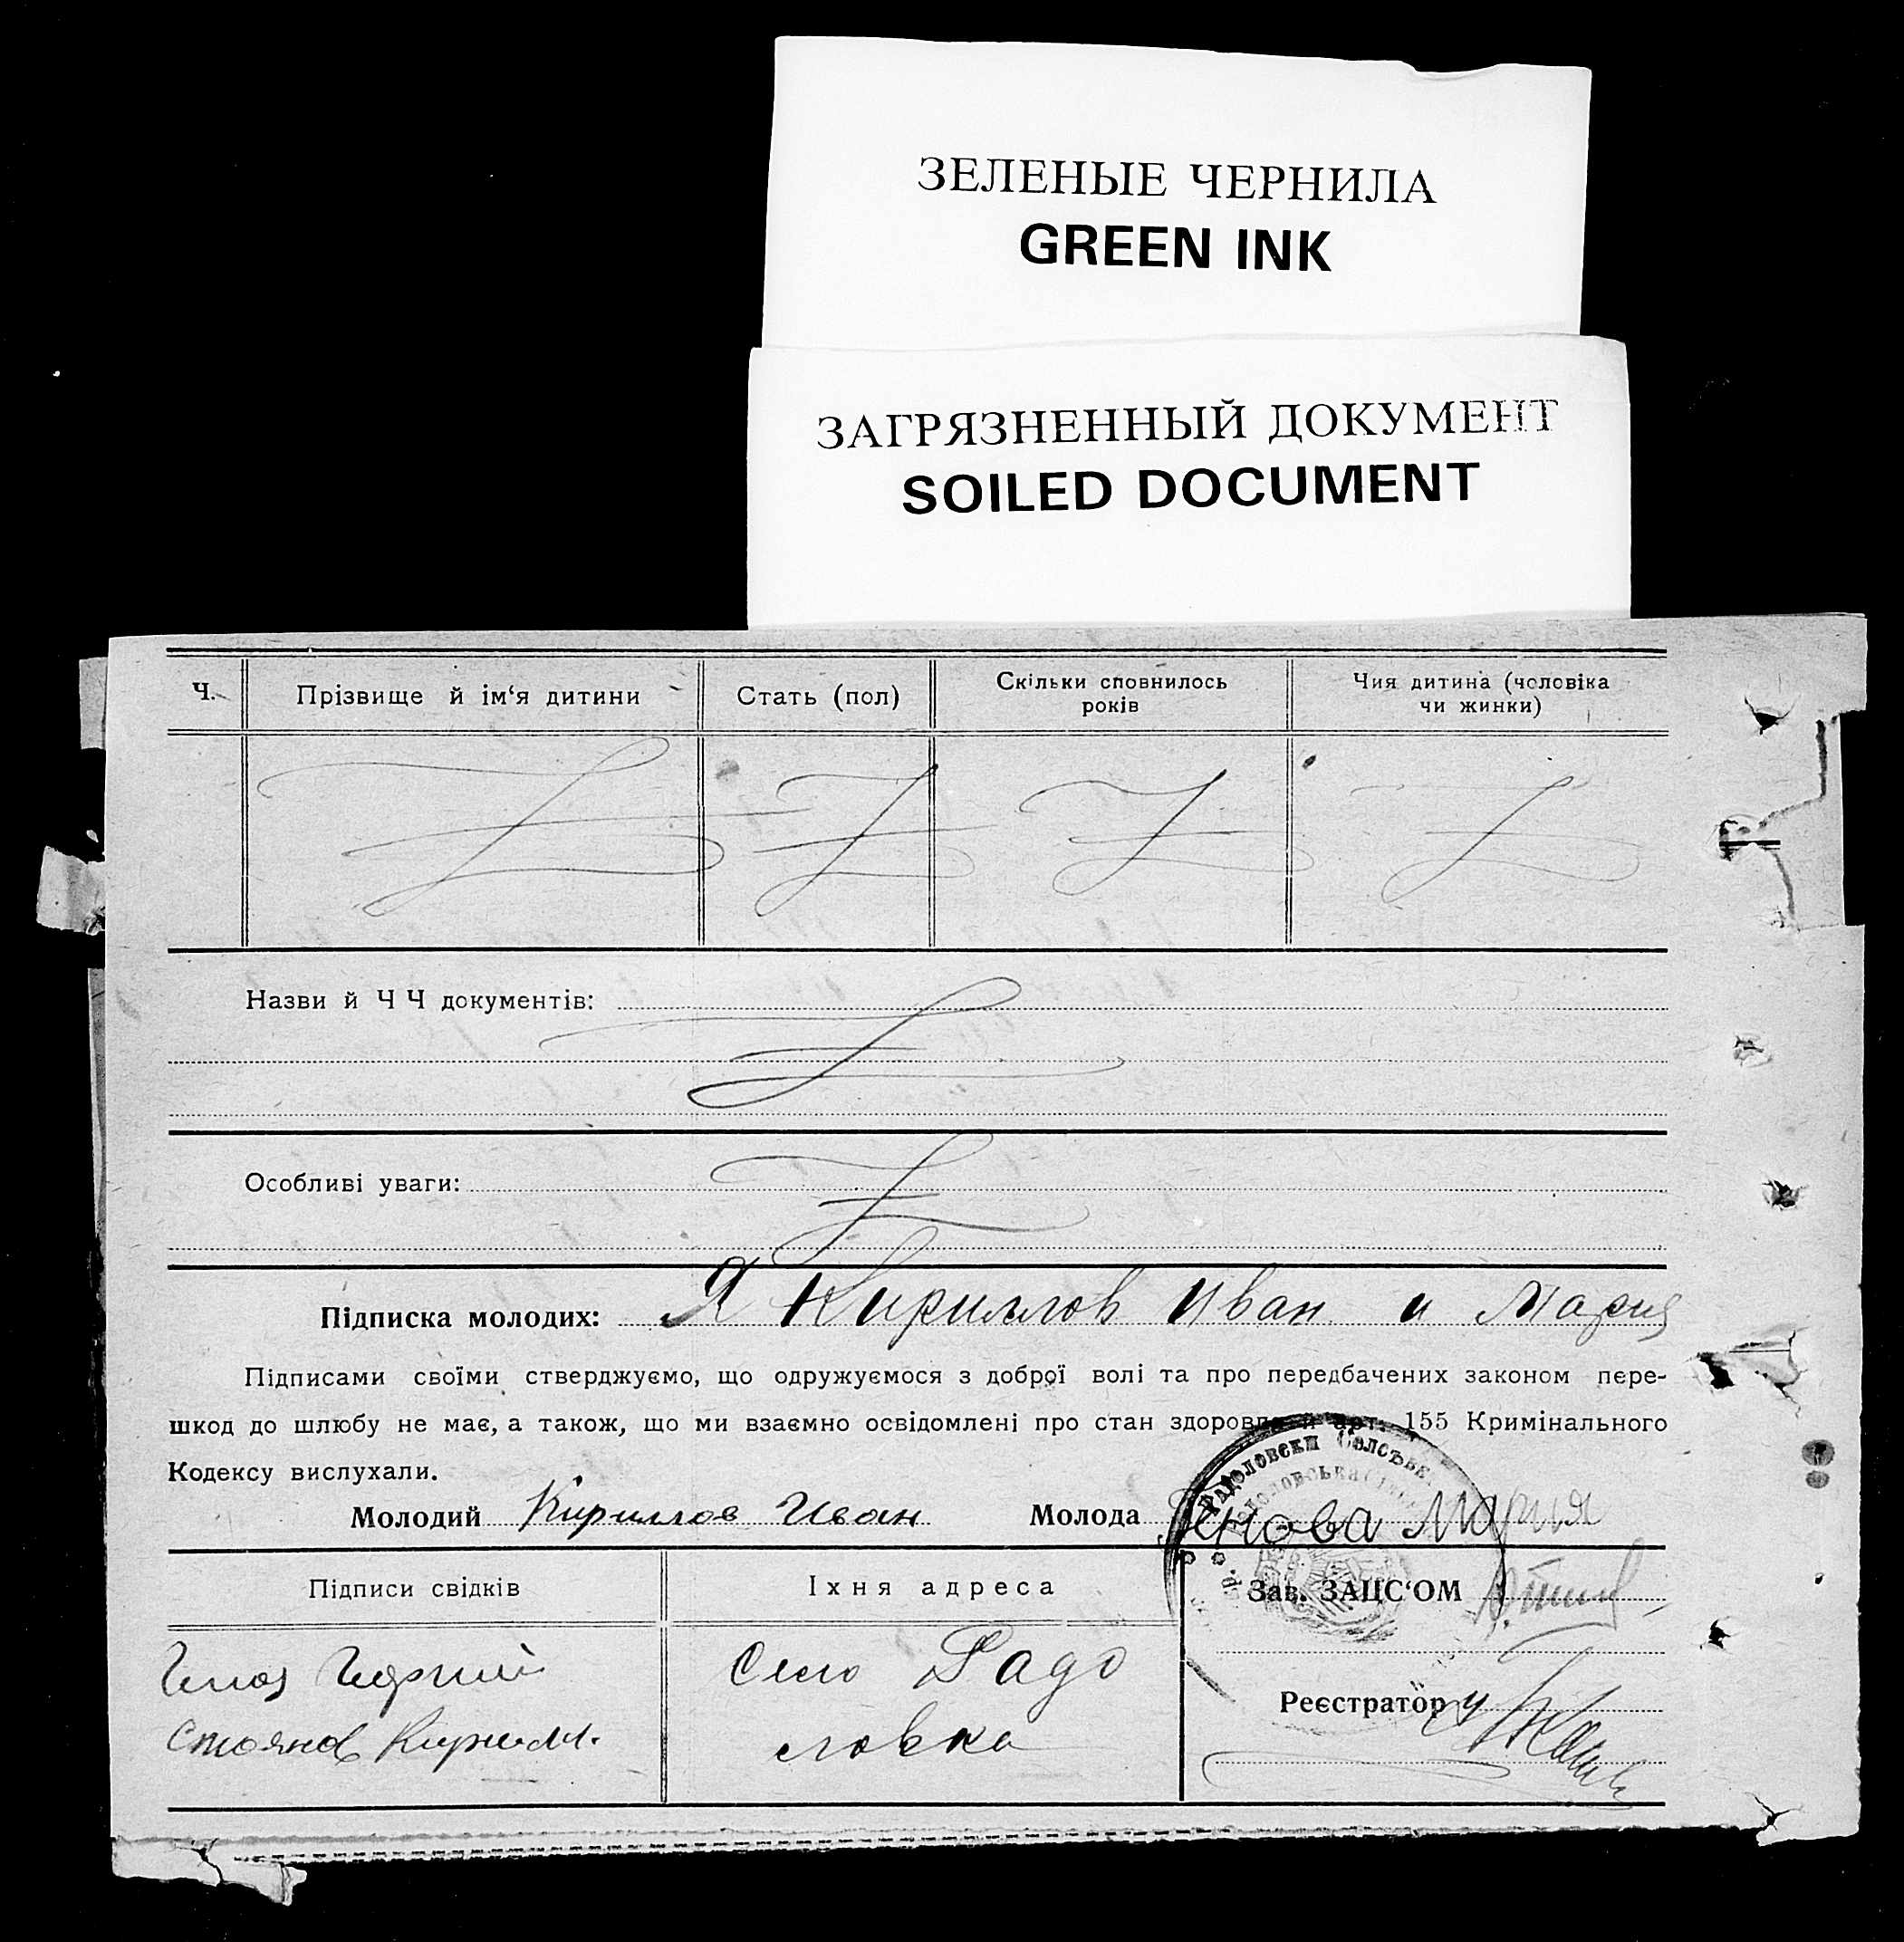 ЗЕЛЕНЫЕ ЧЕРНИЛА
GREEN INK
ЗАГРЯЗНЕННЫЙ ДОКУМЕНТ
SOILED DOCUMENT
Ч.
Прізвище й ім‘я дитини
Стать (пол)
Скільки сповнилось
років
Чия дитина (чоловіка
чи жинки)
Назви й Ч Ч документів:
Особливі уваги:
Підписка молодих: Я Кириллов Иван и Мария
Підписами своїми стверджуємо, що одружуємося з доброї волі та про передбачених законом пере-
шкод до шлюбу не має, а також, що ми взаємно освідомлені про стан здоровля й арт. 155 Кримінального
Кодексу вислухали.
Молодий Кириллов Иван Молода Мария
Підписи свідків
Їхня адреса
Зав. ЗАЦС‘ОМ
Стоянов Кирилл.
Село Радо
ловка
Реєстратор